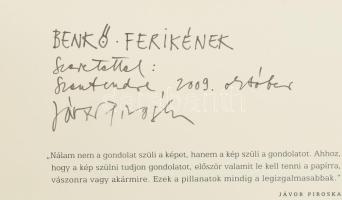 BENKŐ · FERIKÉNEK
Szeretettel:
Szentendre, 2009. október
Jávor Piroska
„Nálam nem a gondolat szüli a képet, hanem a kép szüli a gondolatot. Ahhoz,
hogy a kép szülni tudjon gondolatot, először valamit le kell tenni a papírra,
vászonra vagy akármire. Ezek a pillanatok mindig a legizgalmasabbak."
JÁVOR PIROSKA